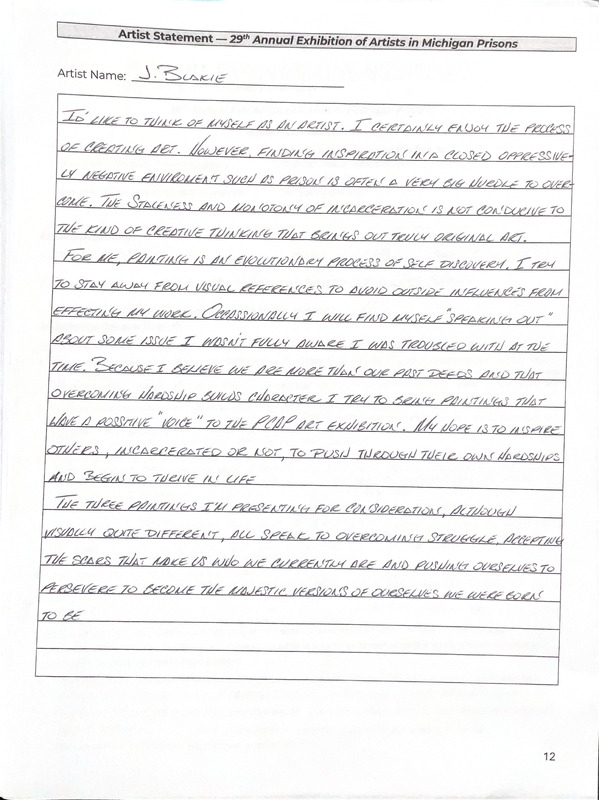 Artist Statement — 29th Annual Exhibition of Artists in Michigan Prisons
Artist Name: J. BLAKIE
I'D LIKE TO THINK OF MYSELF AS AN ARTIST. I CERTAINLY ENJOY THE PROCESS
OF CREATING ART. HOWEVER, FINDING INSPIRATION IN A CLOSED OPPRESSIVE-
LY NEGATIVE ENVIROMENT SUCH AS PRISON IS OFTEN A VERY BIG HURDLE TO OVER-
COME. THE STALENESS AND MONOTONY OF INCARCERATION IS NOT CONDUCIVE TO
THE KIND OF CREATIVE THINKING THAT BRINGS OUT TRULY ORIGINAL ART.
FOR ME, PAINTING IS AN EVOLUTIONARY PROCESS OF SELF DISCOVERY. I TRY
TO STAY AWAY FROM VISUAL REFERENCES TO AVOID OUTSIDE INFLUENCES FROM
EFFECTING MY WORK. OCCASSIONALLY I WILL FIND MYSELF "SPEAKING OUT"
ABOUT SOME ISSUE I WASN'T FULLY AWARE I WAS TROUBLED WITH AT THE
TIME. BECAUSE I BELIEVE WE ARE MORE THAN OUR PAST DEEDS AND THAT
OVERCOMING HARDSHIP BUILDS CHARACTER I TRY TO BRING PAINTINGS THAT
HAVE A POSSITIVE "VOICE" TO THE PCAP ART EXHIBITION. MY HOPE IS TO INSPIRE
OTHERS, INCARCERATED OR NOT, TO PUSH THROUGH THEIR OWN HARDSHIPS
AND BEGIN TO THRIVE IN LIFE
THE THREE PAINTINGS I'M PRESENTING FOR CONSIDERATION, ALTHOUGH
VISUALLY QUITE DIFFERENT, ALL SPEAK TO OVERCOMING STRUGGLE, ACCEPTING
THE SCARS THAT MAKE US WHO WE CURRENTLY ARE AND PUSHING OURSELVES TO
PERSEVERE TO BECOME THE MAJESTIC VERSIONS OF OURSELVES WE WERE BORN
TO BE
12